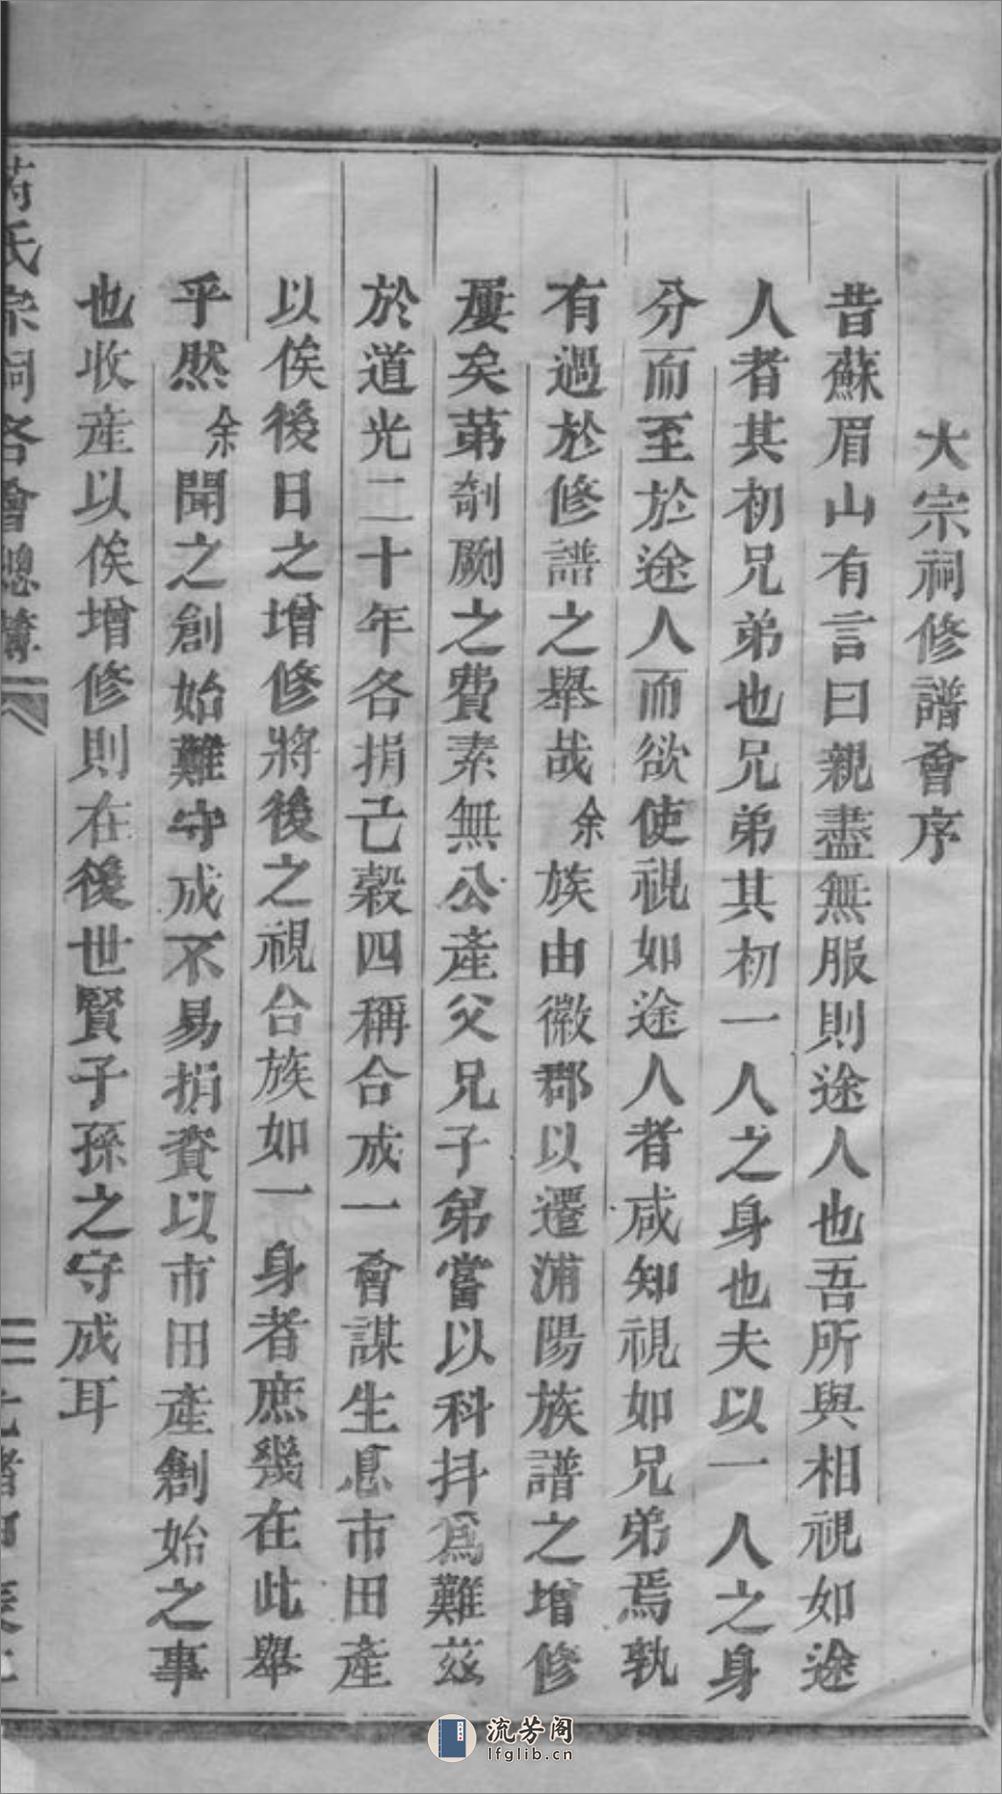 大宗祠修譜會序
昔蘇眉山有言曰親盡無服則途人也吾所與相視如途
人者其初兄弟也兄弟其初一人之身也夫以一人之身
分而至於途人而欲使視如途人者咸知視如兄弟焉孰
有過於修譜之舉哉余族由徽郡以遷浦陽族譜之增修
屢矣苐剞劂之費素無公產父兄子弟當以科抖爲難茲
於道光二十年各捐己穀四稱合成一會謀生息市田產
以俟後日之增修將後之視合族如一身者庶幾在此舉
乎然余聞之創始難守成不易捐資以市田產創始之事
也收產以俟增修則在後世賢子孫之守成耳
氏宗祠各會總簿
流芳阁
lfglib.cn